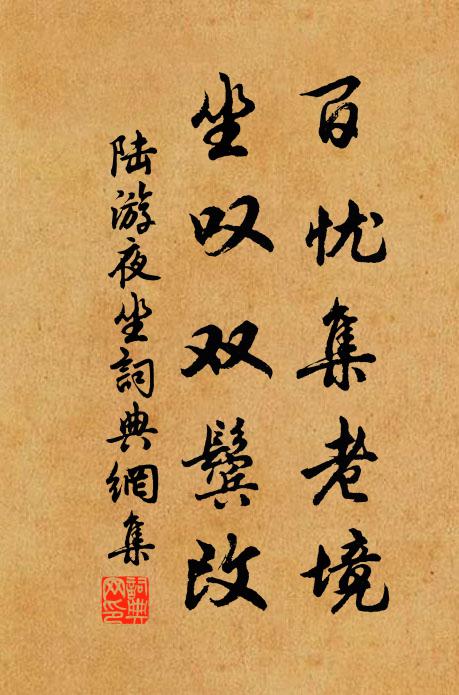 百忧集老境
坐叹双鬓改
陆游夜坐詞典網集
詞典网印